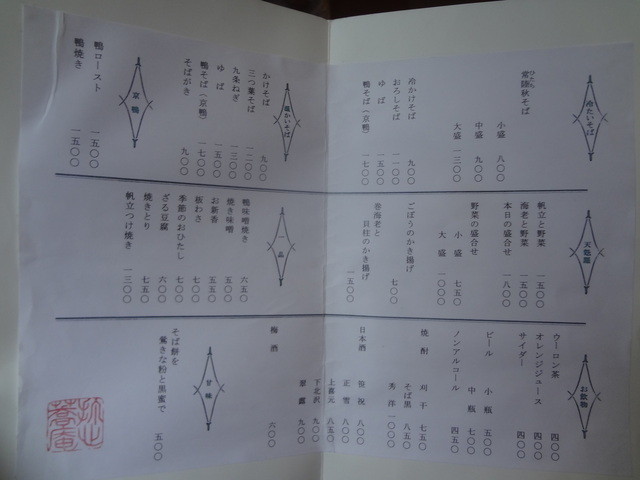 冷たいそば
常陸秋そば
ひたち
小盛 八〇〇
中盛 九〇〇
大盛 一三〇〇
冷かけそば 九〇〇
おろしそば 一一〇〇
ゆば 一五〇〇
鴨そば（京鴨） 一七〇〇
温かいそば
かけそば 九〇〇
三つ葉そば 一二〇〇
九条ねぎ 一三〇〇
ゆば 一五〇〇
鴨そば（京鴨） 一七〇〇
そばがき 九〇〇
京鴨
鴨ロースト 一五〇〇
鴨焼き 一五〇〇
天ぷら
帆立と野菜 一五〇〇
海老と野菜 一五〇〇
本日の盛合せ 一八〇〇
野菜の盛合せ
小盛 七五〇
大盛 一〇〇〇
ごぼうのかき揚げ 七〇〇
巻海老と
貝柱のかき揚げ 一五〇〇
一品
鴨味噌焼き 六五〇
焼き味噌 五〇〇
お新香 五五〇
板わさ 七〇〇
季節のおひたし 七〇〇
ざる豆腐 六〇〇
焼きとり 七五〇
帆立つけ焼き 一三〇〇
お飲物
ウーロン茶 四〇〇
オレンジジュース 四〇〇
サイダー 四〇〇
ビール 小瓶 五〇〇
中瓶 七〇〇
ノンアルコール 四五〇
焼酎 刈干 七五〇
そば黒 八五〇
秀洋 一〇〇〇
日本酒 笹祝 八〇〇
正雪 八〇〇
上喜元 八五〇
下北沢 九〇〇
九〇〇
梅酒 六〇〇
甘味
そば餅を
黄きな粉と黒蜜で 五〇〇